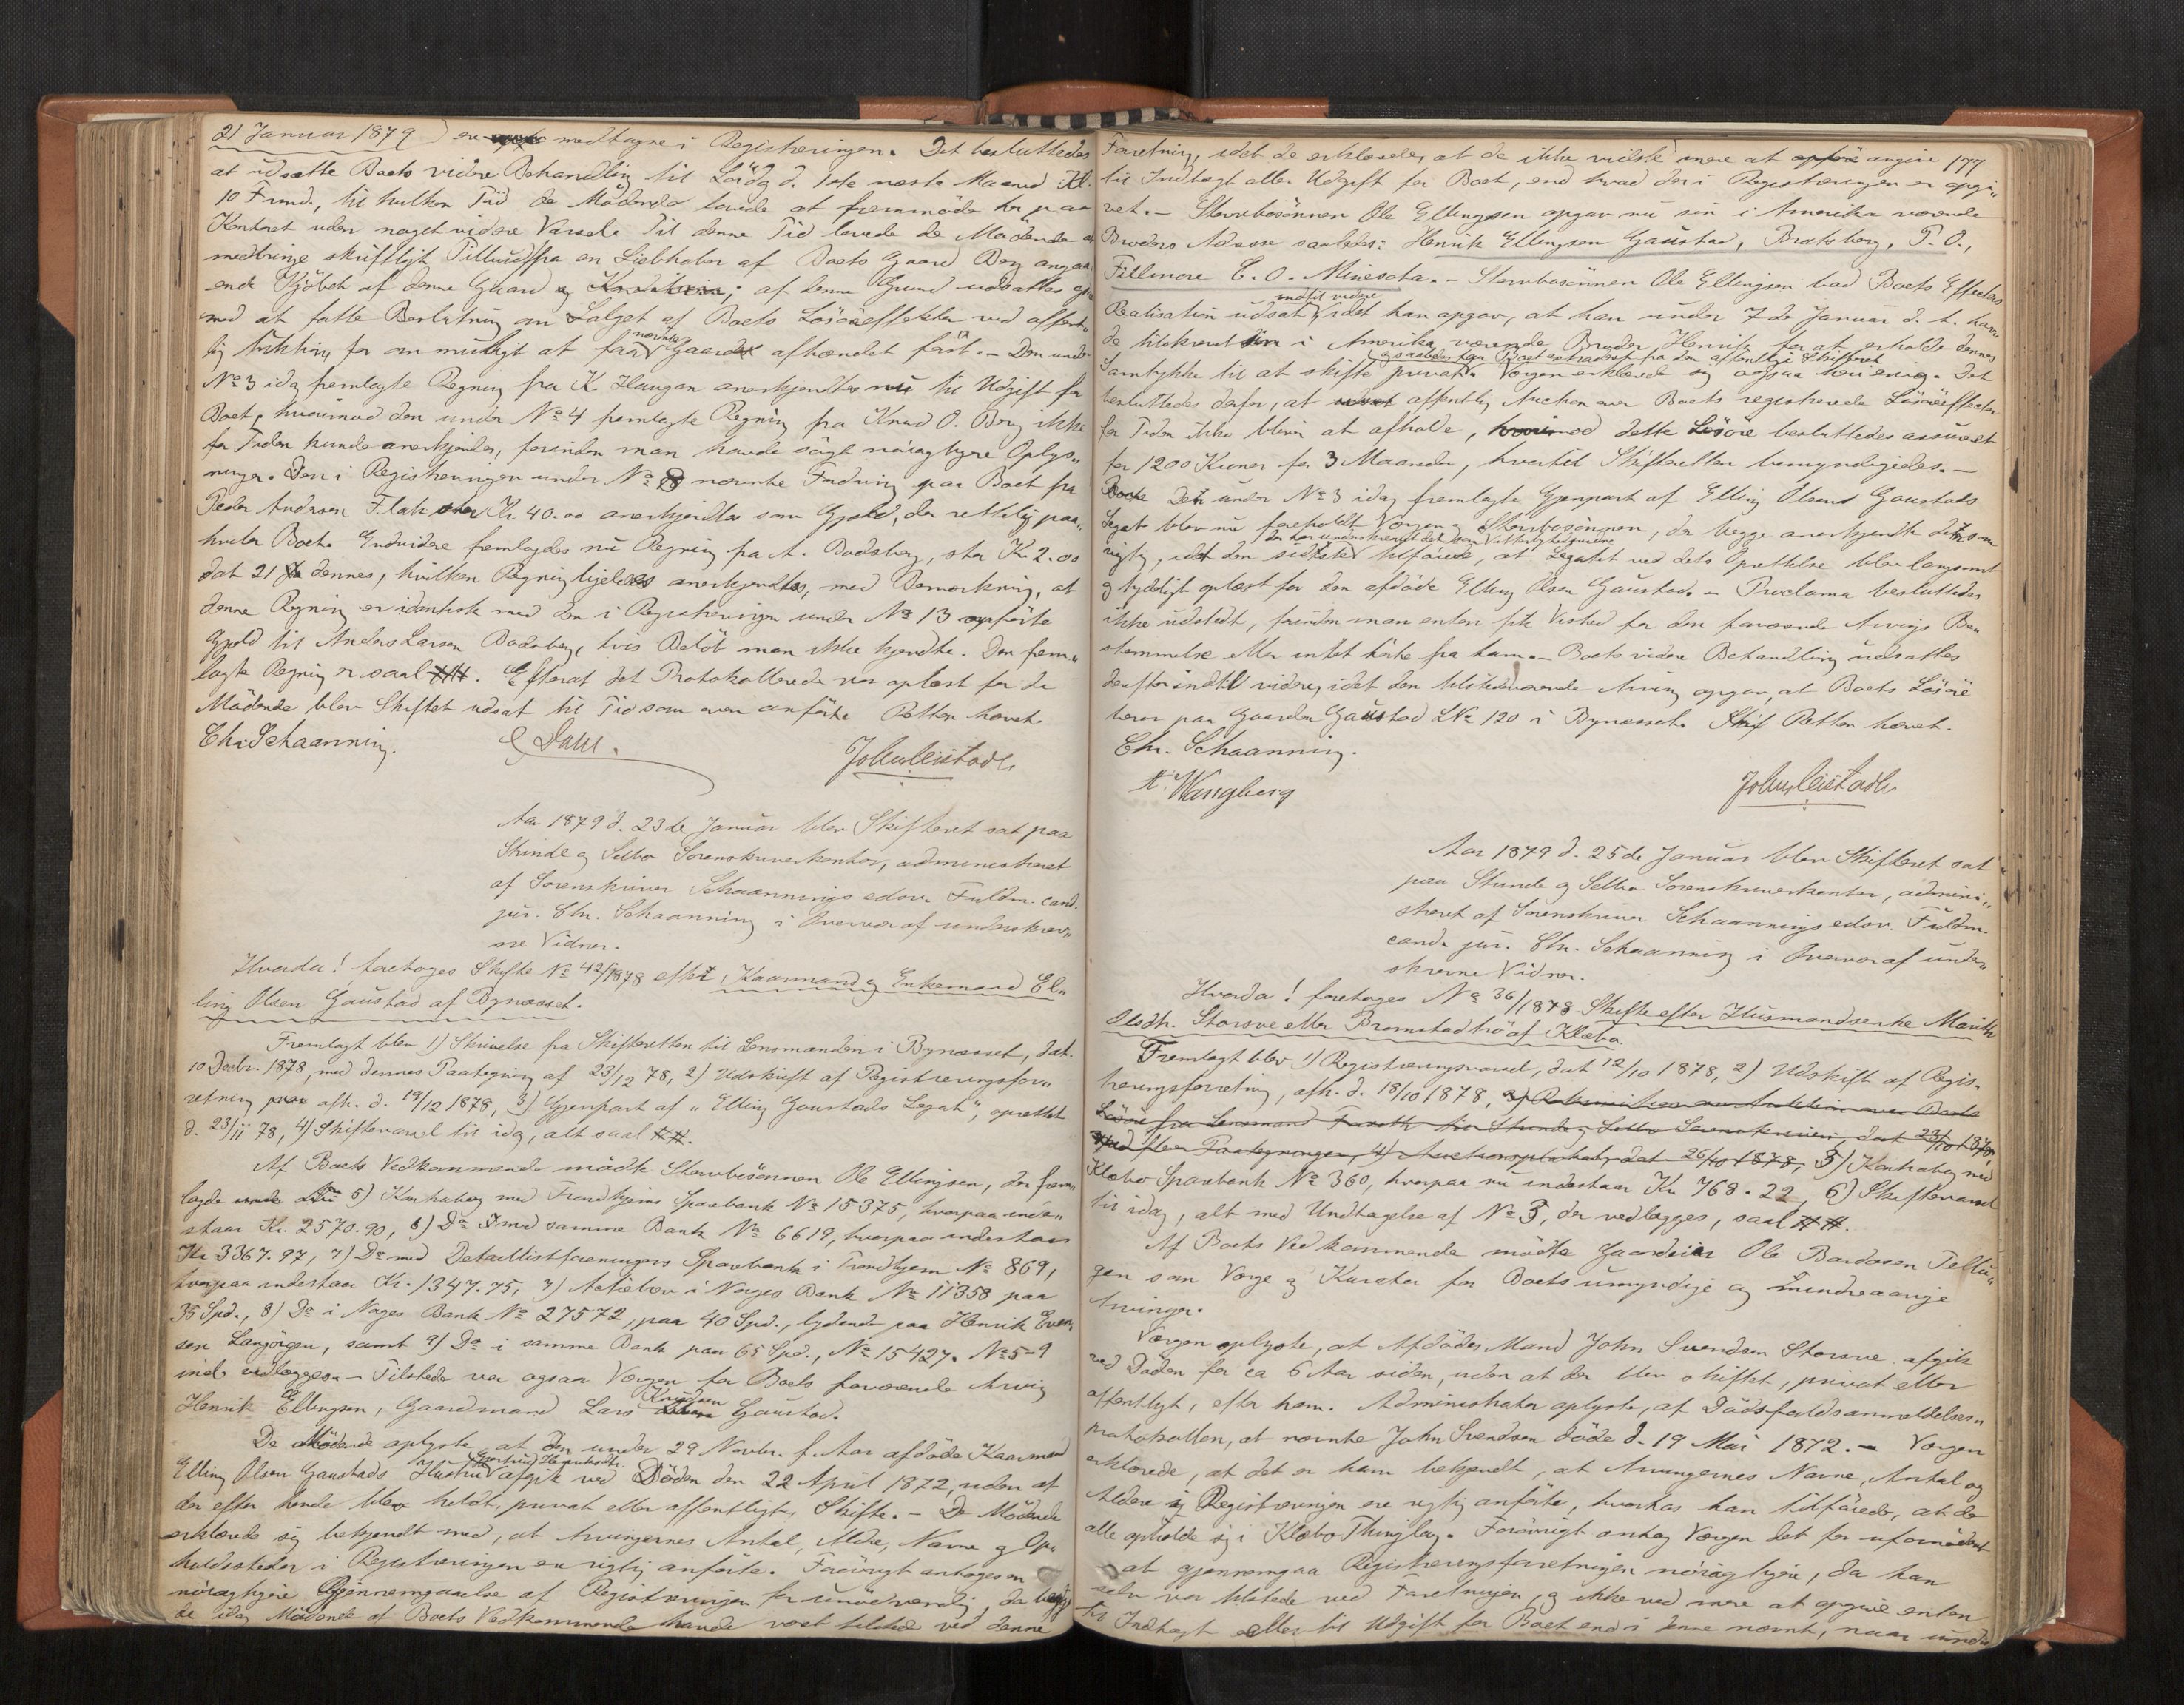 21 Januar 1879) ere medtagne i Registreringen. Det besluttedes
at udsætte Boets videre Behandling til Lørdag d. 1ste næste Maaned Kl.
10 Frmd., til hvilken Tid de Mødende lovede at fremmøde her paa
Kontoret uden noget videre Varsel. Til denne Tid lovede de Mødende at
medbringe skriftligt Tilbud fra en Liebhaber af Boets Gaard Berg angaa-
ende Kjøbet af denne Gaard og ; af denne Grund udsattes og
med at fatte Beslutning om Salget af Boets Løsøreeffekter ved offent-
lig Auktion for om muligt at faa nævnte Gaard afhændet først. – Den under
No 3 idag fremlagte Regning fra K. Haugan anerkjendtes nu til Udgift for
Boet, hvorimod den under No 4 fremlagte Regning fra Knud O. Berg ikke
for Tiden kunde anerkjendes, forinden man havde søgt nøiagtigere Oplys„
ninger. Den i Registreringen under No 8 nævnte Fordring paa Boet fra
Peder Andersen Flak stor Kr 40.00 anerkjendtes som Gjæld, der retteligt paa„
hviler Boet. Endvidere fremlagdes nu Regning fra A. Dodsberg, stor Kr. 2.00
dat 21 dennes, hvilken Regning ligeledes anerkjendtes, med Bemærkning, at
denne Regning er identisk med den i Registreringen under No 13 opførte
Gjæld til Anders Larsen Dodsberg, hvis Beløb man ikke kjendte. Den frem„
lagte Regning er saal. ##. Efterat det Protokollerede var oplæst for de
Mødende blev Skiftet udsat til Tid som oven anført. Retten hævet.
Chr. Schaanning. E Dahl. John Leistad
Aar 1879 d. 23de Januar blev Skifteret sat paa
Strinde og Selbo Sorenskriverkontor, administreret
af Sorenskriver Schaannings edsv. Fuldm. cand.
jur. Chr. Schaanning i Overvær af underskrev„
ne Vidner.
Hvorda! foretoges Skifte No 42/1878 efter Kaarmand og Enkemand El„
ling Olsen Gaustad af Bynæsset.
Fremlagt blev 1) Skrivelse fra Skifteretten til Lensmanden i Bynæsset, dat.
10 Decbr. 1878, med dennes Paategning af 23/12 78, 2) Udskrift af Registreringsfor„
retning afh. d. 19/12 1878, 3) Gjenpart af „Elling Gaustads Legat“, oprettet
d. 23/11 78, 4) Skiftevarsel til idag, alt saal. ##.
Af Boets Vedkommende mødte Stervbosønnen Ole Ellingsen, der frem„
lagde 5) Kontrabog med Trondhjems Sparebank No 15375, hvorpaa inde„
staar Kr. 2570.90, 6) Do med samme Bank No 6619, hvorpaa indestaar
Kr 3367.97, 7) Do med Detaillistforeningens Sparebank i Trondhjem No 869,
hvorpaa indestaar Kr. 1347.75, 7) Actiebrev i Norges Bank No 11358 paa
35 Spd., 8) Do i Norges Bank No 27572, paa 40 Spd., lydende paa Henrik Even„
sen Langørgen, samt 9) Do i samme Bank paa 65 Spd., No 15427. No 5–9
incl. vedlægges. – Tilstede var ogsaa Værgen for Boets fraværende Arving
Henrik Ellingsen, Gaardmand Lars Knudsen Gaustad.
De Mødende oplyste, at den under 29 Novbr. f. Aar afdøde Kaarmand
Elling Olsen Gaustads Hustru afgik ved Døden den 22 April 1872, uden at
der efter hende blev holdt, privat eller offentligt, Skifte. – De Mødende
erklærede sig bekjendt med, at Arvingernes Antal, Aldre, Navne og Op„
holdssteder i Registreringen ere rigtig anførte. Forøvrigt antoges en
nøiagtigere Gjennemgaaelse af Registreringen for unødvendig, da begge
de idag Mødende af Boets Vedkommende havde været tilstede ved denne
Forretning, idet de erklærede, at de ikke vidste mere at angive 177
til Indtægt eller Udgift for Boet, end hvad der i Registreringen er opgi„
vet. – Stervbosønnen Ole Ellingsen opgav nu sin i Amerika værende
Broders Adresse saaledes: Henrik Ellingsen Gaustad, Bratsberg, P. O.,
Fillmore C. O. Minesota. – Stervbosønnen Ole Ellingsen bad Boets Effecters
Realisation udsat indtil videre, idet han opgav, at han under 7de Januar d. A. hav„
de tilskrevet sin i Amerika værende Broder Henrik for at erholde dennes
Samtykke til at skifte privat og saaledes faa Boet extraderet fra den offentlige Skifteret. Værgen erklærede sig ogsaa heri enig. Det
besluttedes derfor, at offentlig Auction over Boets registrerede Løsøreeffecter
for Tiden ikke bliver at afholde, hvorimod dette Løsøre besluttedes assureret
for 1200 Kroner for 3 Maaneder, hvortil Skifteretten bemyndigedes. –
Den under No 3 idag fremlagte Gjenpart af Elling Olsens Gaustads
Legat blev nu foreholdt Værgen og Stervbosønnen, der begge anerkjendte det som
rigtig, idet den sidste, der har underskrevet det som Vitterlighedsvidne, tilføiede, at Legatet ved dets Oprettelse blev langsomt
og tydeligt oplæst for den afdøde Elling Olsen Gaustad. – Proclama besluttedes
ikke udstedt, forinden man enten fik Vished for den fraværende Arvings Be„
stemmelse eller intet hørte fra ham. – Boets videre Behandling udsattes
derefter indtil videre, idet den tilstedeværende Arving opgav, at Boets Løsøre
beror paa Gaarden Gaustad LNo 120 i Bynæsset. Retten hævet.
Chr. Schaanning.
A. Wangberg John Leistad
Aar 1879 d. 25de Januar blev Skifteret sat
paa Strinde og Selbo Sorenskriverkontor, admini„
streret af Sorenskriver Schaannings edsv. Fuldm.
cand. jur. Chr. Schaanning i Overvær af under„
skrevne Vidner.
Hvorda! foretoges No 36/1878 Skifte efter Husmandsenke Marith
Olsdtr. Storsve eller Bromstadtrø af Klæbo.
Fremlagt blev 1) Registreringsvarsel, dat 12/10 1878, 2) Udskrift af Regis„
treringsforretning, afh. d. 18/10 1878, 3) Rekvisition om Auktion over Boets
Løsøre fra Lensmand Forseth til Strinde og Selbo Sorenskriveri, dat 23/10 1878,
med flere Paategninger, 4) Auctionsplakat, dat 26/10 1878, 5) Kontrabog med
Klæbo Sparebank No 360, hvorpaa nu indestaar Kr. 768.22, 6) Skiftevarsel
til idag, alt med Undtagelse af No 3, der vedlægges, saal. ##.
Af Boets Vedkommende mødte Gaardeier Ole Bardosen Tellu„
gen som Værge og Kurator for Boets umyndige og mindreaarige
Arvinger.
Værgen oplyste, at Afdødes Mand John Svendsen Storsve afgik
ved Døden for ca 6 Aar siden, uden at der blev skiftet, privat eller
offentligt, efter ham. Administrator oplyste, af Dødsfaldsanmeldelses„
protokollen, at nævnte John Svendsen døde d. 19 Mai 1872. – Værgen
erklærede, at det er ham bekjendt, at Arvingernes Navne, Antal og
Aldere i Registreringen ere rigtig anførte, hvorhos han tilføiede, at de
alle opholde sig i Klæbo Thinglag. Forøvrigt antog Værgen det for ufornødent
at gjennemgaa Registreringsforretningen nøiagtigere, da han
selv var tilstede ved Forretningen, og ikke ved mere at opgive enten
til Indtægt eller til Udgift for Boet end i denne nævnt, naar undta